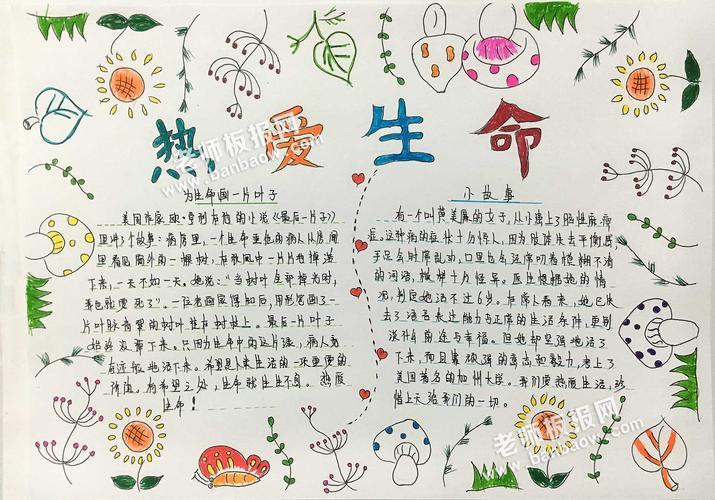 热爱生命
老师板报网
www.banbaow.com
为生命画一片叶子
美国作家欧·亨利在他的小说《最后一片叶子》
里讲了个故事：病房里，一个生命垂危的病人从房间
里看见窗外的一棵树，在秋风中一片片地掉落
下来，一天不如一天。她说：“当树叶全部掉光时，
我也就要死了”。一位老画家得知后，用彩笔画了一
片叶脉青翠的树叶挂在树枝上。最后一片叶子
始终没有掉下来。只因为生命中的这片绿，病人竟
奇迹般地活下来。希望是人类生活的一项重要的
有希望之处，生命就生生不息。热爱
生命！
小故事
有一个叫黄美廉的女子，从小患上了脑性麻痹
症。这种病的症状十分惊人，因为肢体失去平衡感，
手足会时常乱动，口里也会经常叨着模糊不清
的词语，模样十分怪异。医生根据她的情
况，判定她活不过6岁。在常人看来，她已失
去了语言表达能力与正常的生活条件，更别
谈什么前途与幸福。但她却坚强地活了
下来，而且靠顽强的意志和毅力，考上了
美国著名的加州大学。我们要热爱生活，珍
惜上天给我们的一切。
老师板报网
www.banbaow.com